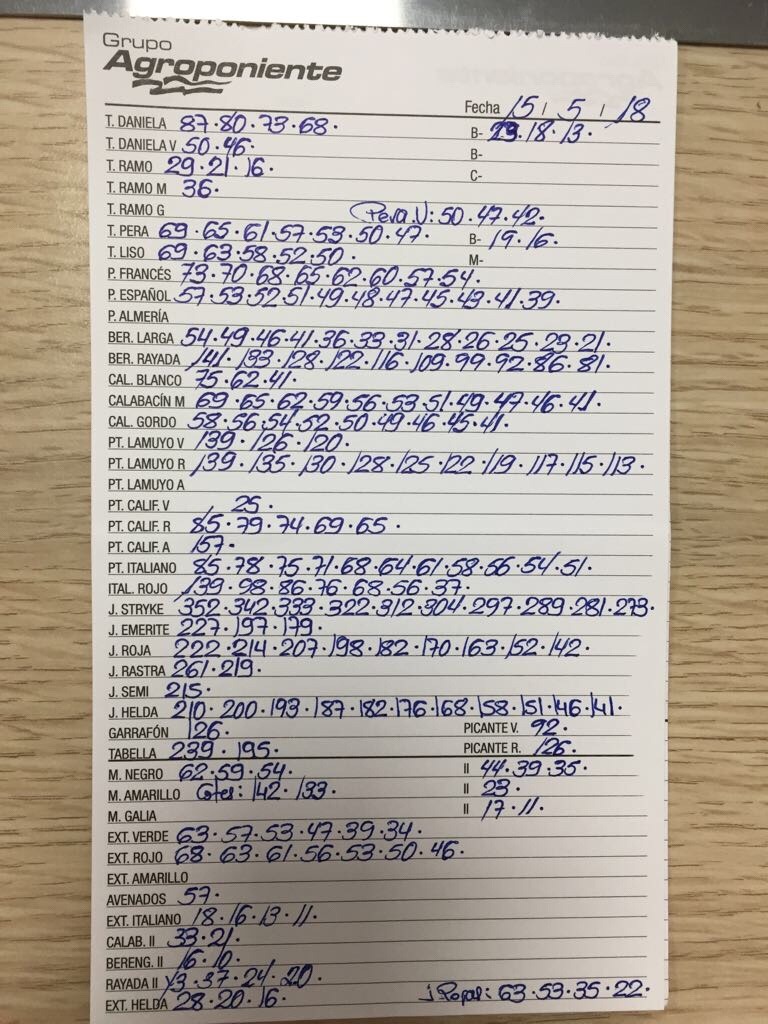 Grupo
Agroponiente
Fecha 15 / 5 / 18
T. DANIELA 87·80·73·68· B- 23·18·13·
T. DANELA V 50·46· B-
T. RAMO 29·21·16· C-
T. RAMO M 36·
T. RAMO G Pera V: 50·47·42·
T. PERA 69·65·61·57·53·50·47· B- 19·16·
T. LISO 69·63·58·52·50· M-
P. FRANCÉS 73·70·68·65·62·60·57·54·
P. ESPAÑOL 57·53·52·51·49·48·47·45·43·41·39·
P. ALMERÍA
BER. LARGA 54·49·46·41·36·33·31·28·26·25·23·21·
BER. RAYADA 141·133·128·122·116·109·99·92·86·81·
CAL. BLANCO 75·62·41·
CALABACÍN M 69·65·62·59·56·53·51·49·47·46·41·
CAL. GORDO 58·56·54·52·50·49·46·45·41·
PT. LAMUYO V 139·126·120·
PT. LAMUYO R 139·135·130·128·125·122·119·117·115·113·
PT. LAMUYO A
PT. CALIF. V 25·
PT. CALIF. R 85·79·74·69·65·
PT. CALIF. A 157·
PT. ITALIANO 85·78·75·71·68·64·61·58·56·54·51·
ITAL. ROJO 139·98·86·76·68·56·37·
J. STRYKE 352·342·333·322·312·304·297·289·281·273·
J. EMERITE 227·197·179·
J. ROJA 222·214·207·198·182·170·163·152·142·
J. RASTRA 261·219·
J. SEMI 215·
J. HELDA 210·200·193·187·182·176·168·158·151·146·141·
GARRAFÓN 126· PICANTE V. 92·
TABELLA 239·195· PICANTE R. 126·
M. NEGRO 62·59·54· II 44·39·35·
M. AMARILLO 142·133· II 23·
M. GALIA II 17·11·
EXT. VERDE 63·57·53·47·39·34·
EXT. ROJO 68·63·61·56·53·50·46·
EXT. AMARILLO
AVENADOS 57·
EXT. ITALIANO 18·16·13·11·
CALAB. II 33·21·
BERENG. II 16·10·
RAYADA II 37·24·20·
EXT. HELDA 28·20·16· 63·53·35·22·